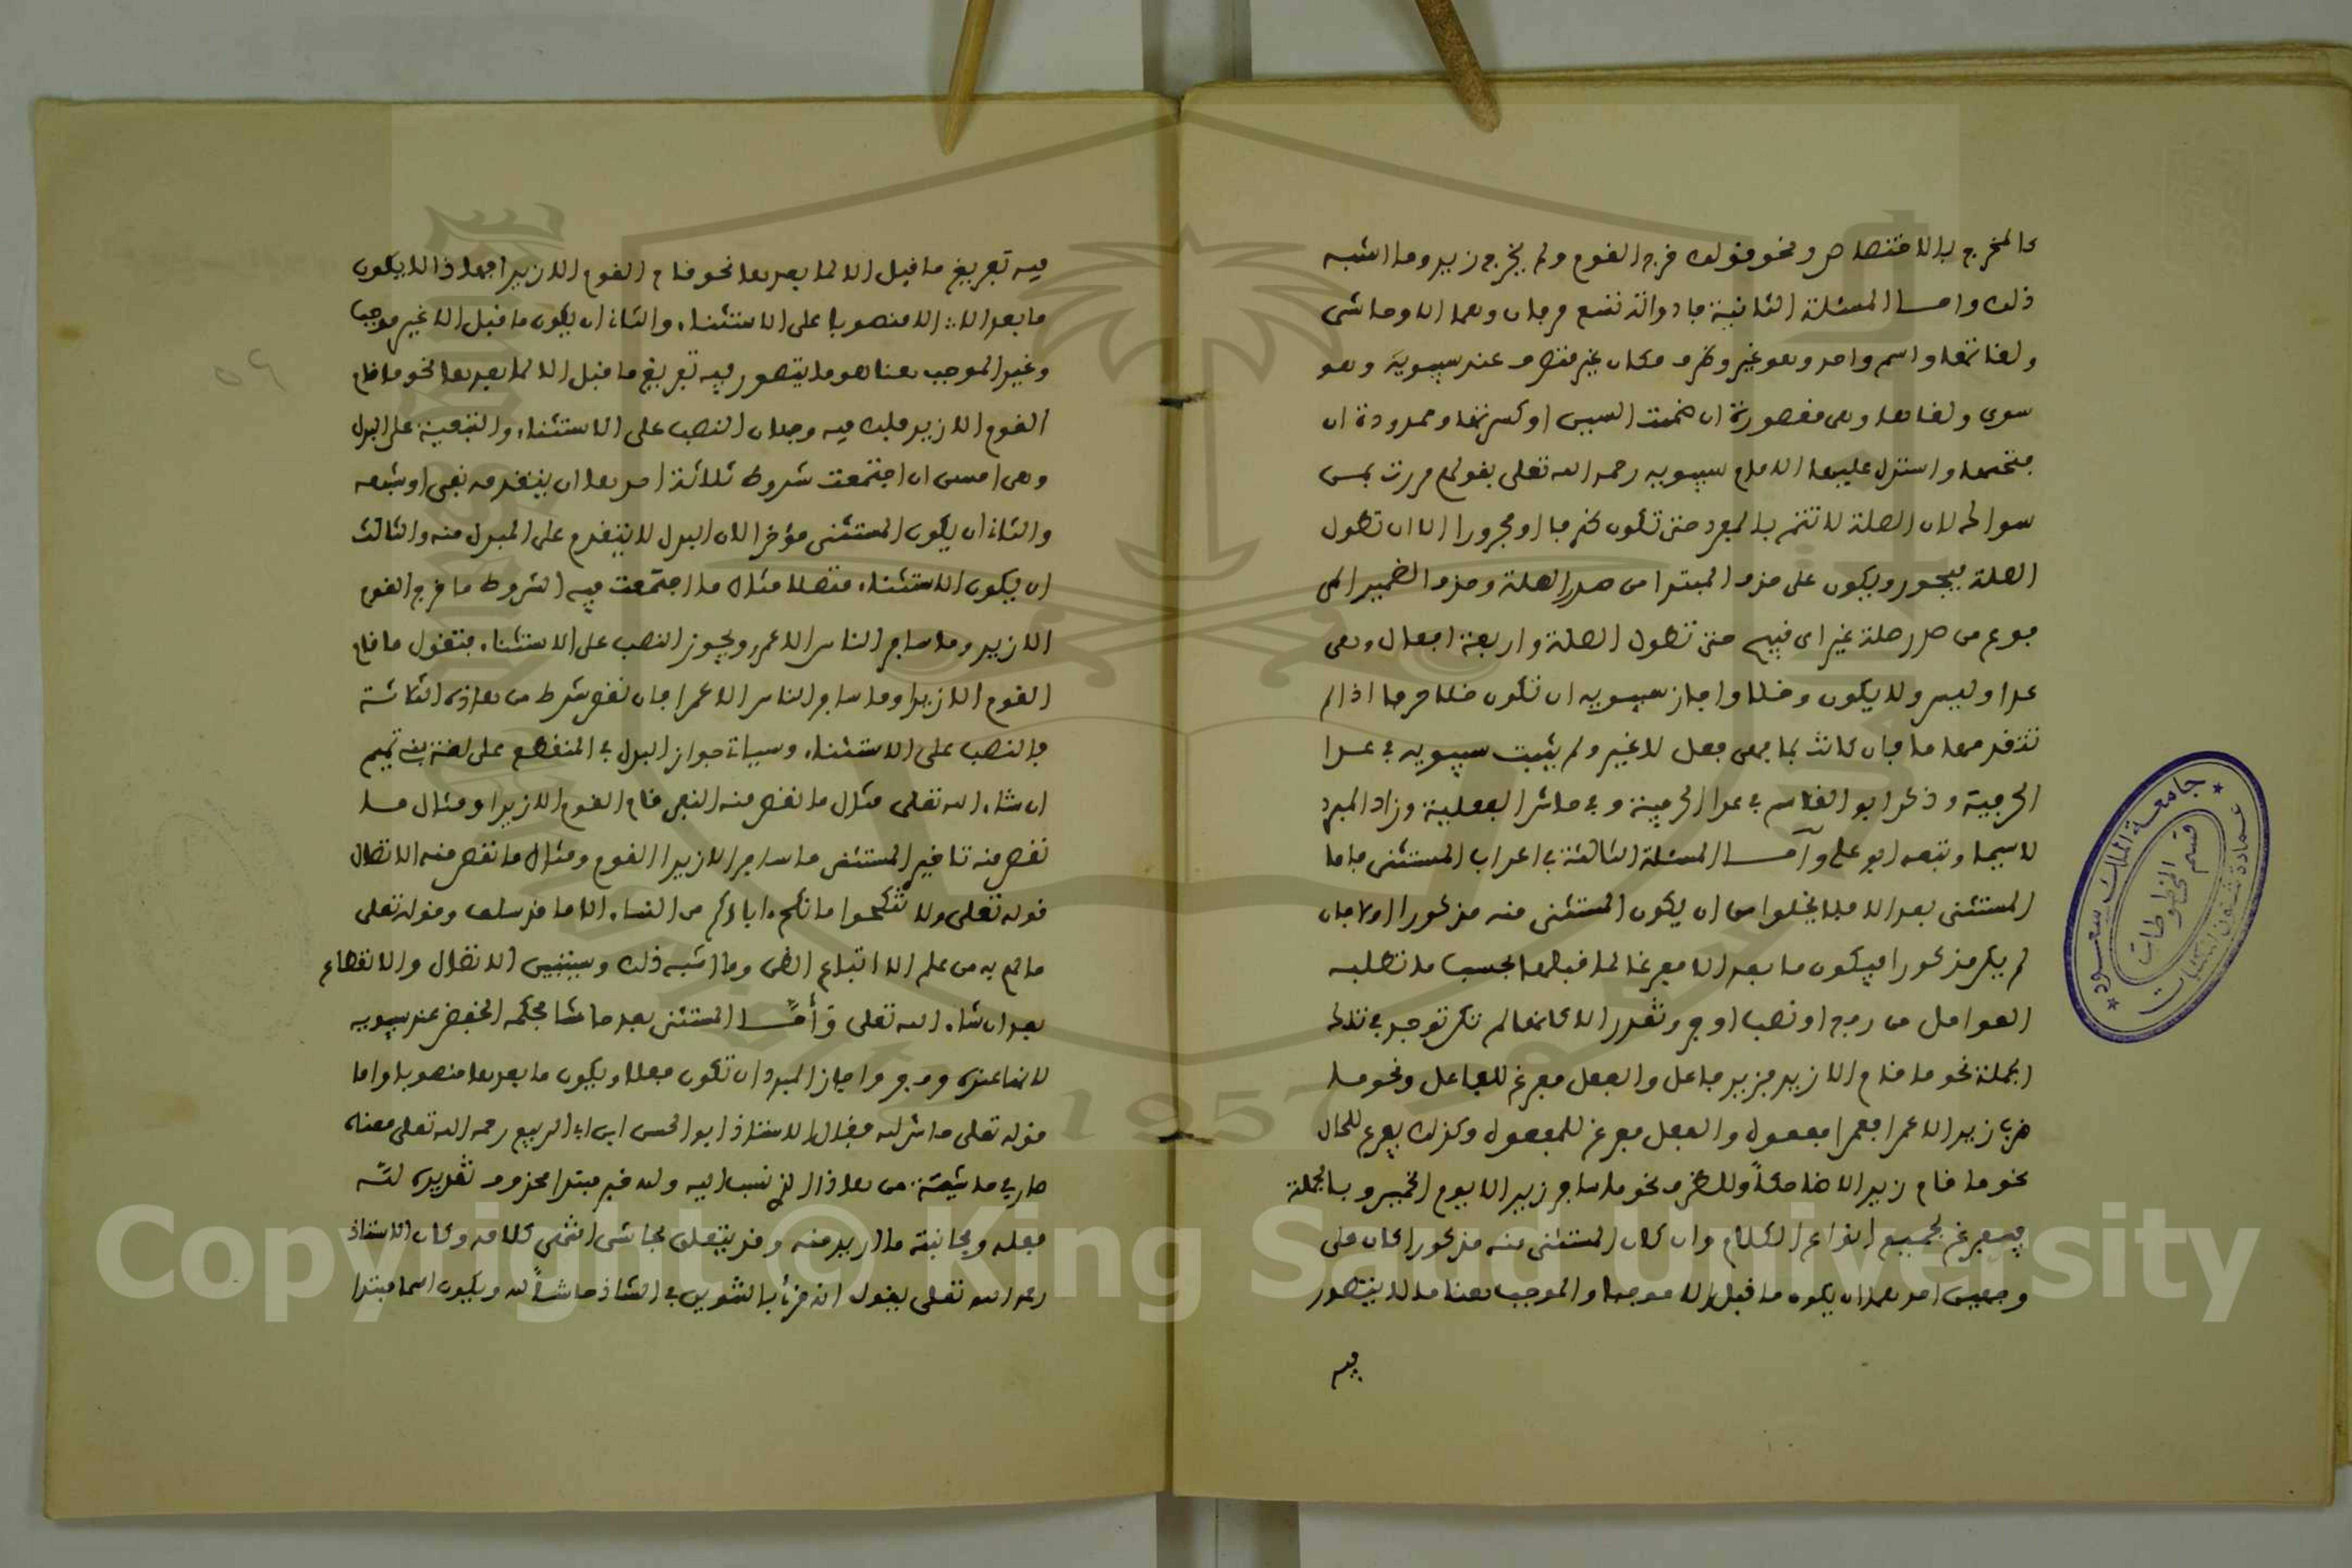 كالمخرج بالاختصاص ونحو قولك خرج القوم ولم يخرج زيد وما اشبه
ذلك واما المسئلة الثانية فادواته تسع حرفان وهما الا وحاشى
ولغاتها واسم واحد وهو غير وظرف مكان غير متصرف عند سيبويه وهو
سوى ولغاتها وهي مقصورة ان ضمت السين او كسرتها وممدودة ان
فتحتها واستدل عليها الامام سيبويه رحمه الله تعلى بقولهم مررت بمن
سواك لان الصلة لا تتم بالمفرد حتى تكون ظرفا او مجرورا الا ان تطول
الصلة فيجوز ويكون على حذف المبتدا من صدر الصلة وحذف الضمير
من صدر صلة غير اي قبيح حتى تطول الصلة واربعة افعال وهي
عدا وليس ولا يكون وخلا واجاز سيبويه ان تكون خلا حرفا اذا لم
تتقدمها ما فان كانت بما فهي فعل لا غير ولم يثبت سيبويه في عدا
الحرفية وذكر ابو القاسم في عدا الحرفية وفي حاشا الفعلية وزاد المبرد
لا سيما وتبعه ابو علي وأما المسئلة الثالثة في اعراب المستثنى فاما
المستثنى بعد الا فلا يخلوا من ان يكون المستثنى منه مذكورا اولا فان
لم يكن مذكورا فيكون ما بعد الا مفرغا لما قبلها بحسب ما تطلبه
العوامل من رفع او نصب او جر وتقدر الا كانها لم تكن توجد في تلك
الجملة نحو ما قام الا زيد فزيد فاعل والفعل مفرغ للفاعل ونحو ما
ضرب زيد الا عمرا فعمرا مفعول والفعل مفرغ للمفعول وكذلك يفرغ للحال
نحو ما قام زيد الا ضاحكاً وللظرف نحو ما سافر زيد الا يوم الخميس وبالجملة
فيفرغ لجميع انواع الكلام وان كان المستثنى منه مذكورا كان على
وجهين احدهما ان يكون ما قبل الا موجبا والموجب هنا ما لا يتصور
فيه
فيه تفريغ ما قبل الا لما بعدها نحو قام القوم الا زيدا فهذا لا يكون
ما بعد الا الا منصوبا على الاستثناء والثاني ان يكون ما قبل الا غير موجب
وغير الموجب هنا هو ما يتصور فيه تفريغ ما قبل الا لما بعدها نحو ما قام
القوم الا زيد فلك فيه وجهان النصب على الاستثناء والتبعية على البدل
وهي احسن ان اجتمعت شروط ثلاثة احدها ان يتقدمه نفي او شبهه
والثاني ان يكون المستثنى مؤخرا لان البدل لا يتقدم على المبدل منه والثالث
ان يكون الاستثناء متصلا مثال ما اجتمعت فيه الشروط ما خرج القوم
الا زيد وما سافر الناس الا عمرو ويجوز النصب على الاستثناء فتقول ما قام
القوم الا زيدا وما سافر الناس الا عمرا فان نقص شرط من هاذه الثلاثة
فالنصب على الاستثناء وسياتي جواز البدل في المنقطع على لغة بني تميم
ان شاء الله تعلى مثال ما نقص منه النفي قام القوم الا زيدا ومثال ما
نقص منه تاخير المستثنى ما سافر الا زيدا القوم ومثال ما نقص منه الاتصال
قوله تعلى ولا تنكحوا ما نكح اباؤكم من النساء الا ما قد سلف وقوله تعلى
ما لهم به من علم الا اتباع الظن وما اشبه ذلك وسنبين الاتصال والانقطاع
بعد ان شاء الله تعلى وأمَّا المستثنى بعد حاشا فحكمه الخفض عند سيبويه
لانها عنده حرف جر واجاز المبرد ان تكون فعلا ويكون ما بعدها منصوبا واما
قوله تعلى حاش لله فقال الاستاذ ابو الحسن ابن ابي الربيع رحمه الله تعلى معناه
صار في حاشية من هاذا الذي نسب اليه ولله خبر مبتدا محذوف تقديره لله
فعله ومجانبة ما اريد منه وقد يتعلق بحاشى انتهى كلامه وكان الاستاذ
رحمه الله تعلى يقول انه قرئ بالتنوين في الشاذ حاشاً لله ويكون اسما مبتدا
جامعة الملك سعود
عمادة شئون المكتبات
قسم المخطوطات
Copyright © King Saud University
1957